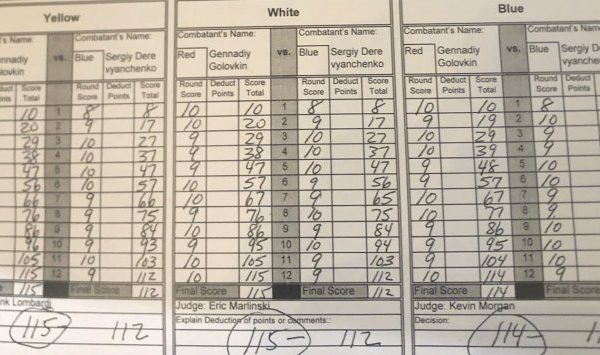 Yellow
Combatant's Name:
vs. Blue Sergiy Dere
vyanchenko
Score Total Round Score Deduct Points Score Total
10 1 8 8
20 2 9 17
29 3 10 27
38 4 10 37
47 5 10 47
56 6 10 57
66 7 9 66
76 8 9 75
86 9 9 84
96 10 9 93
105 11 10 103
115 12 9 112
115 Final Score 112
Lombardi
115- 112
White
Combatant's Name: Combatant's Name:
Red Gennadiy vs. Blue Sergiy Dere
Golovkin vyanchenko
Round Score Deduct Points Score Total Round Score Deduct Points Score Total
10 10 1 8 8
10 20 2 9 17
9 29 3 10 27
9 38 4 10 37
9 47 5 10 47
10 57 6 9 56
10 67 7 9 65
9 76 8 10 75
10 86 9 9 84
9 95 10 10 94
10 105 11 9 103
10 115 12 9 112
Final Score 115 Final Score 112
Judge: Eric Marlinski
Explain Deduction of points or comments:
115- 112
Blue
Combatant's Name: Combatant's Nam
Red Gennadiy vs. Blue Sergiy D
Golovkin vyanche
Round Score Deduct Points Score Total Round Score Deduct Points
10 10 1 8
9 19 2 10
10 29 3 9
10 39 4 9
9 48 5 10
9 57 6 10
10 67 7 9
10 77 8 9
9 86 9 10
9 95 10 10
9 104 11 10
10 114 12 9
Final Score 114 Final Score
Judge: Kevin Morgan
Decision:
114-